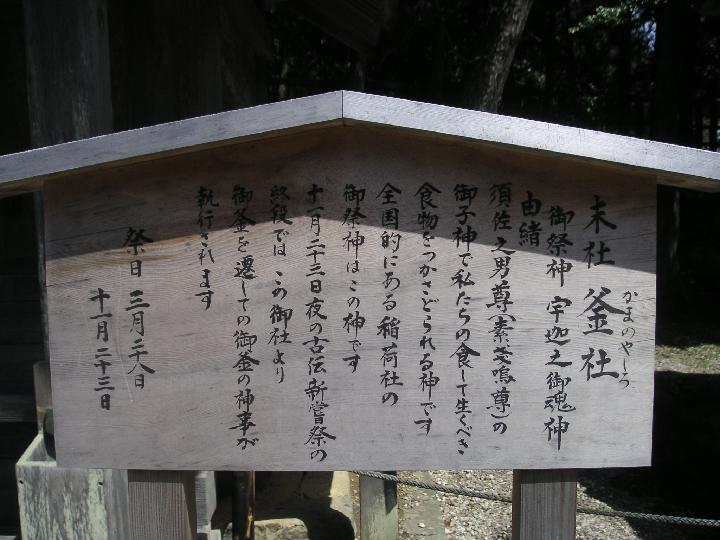 末社 釜社
かまのやしろ
御祭神 宇迦之御魂神
由緒
須佐之男尊(素戔嗚尊)の
御子神で私たちの食して生くべき
食物をつかさどられる神です
全国的にある稲荷社の
御祭神はこの神です
十一月二十三日夜の古伝新嘗祭の
終段では この御社より
御釜を遷しての御釜の神事が
執行されます
祭日 三月二十八日
十一月二十三日